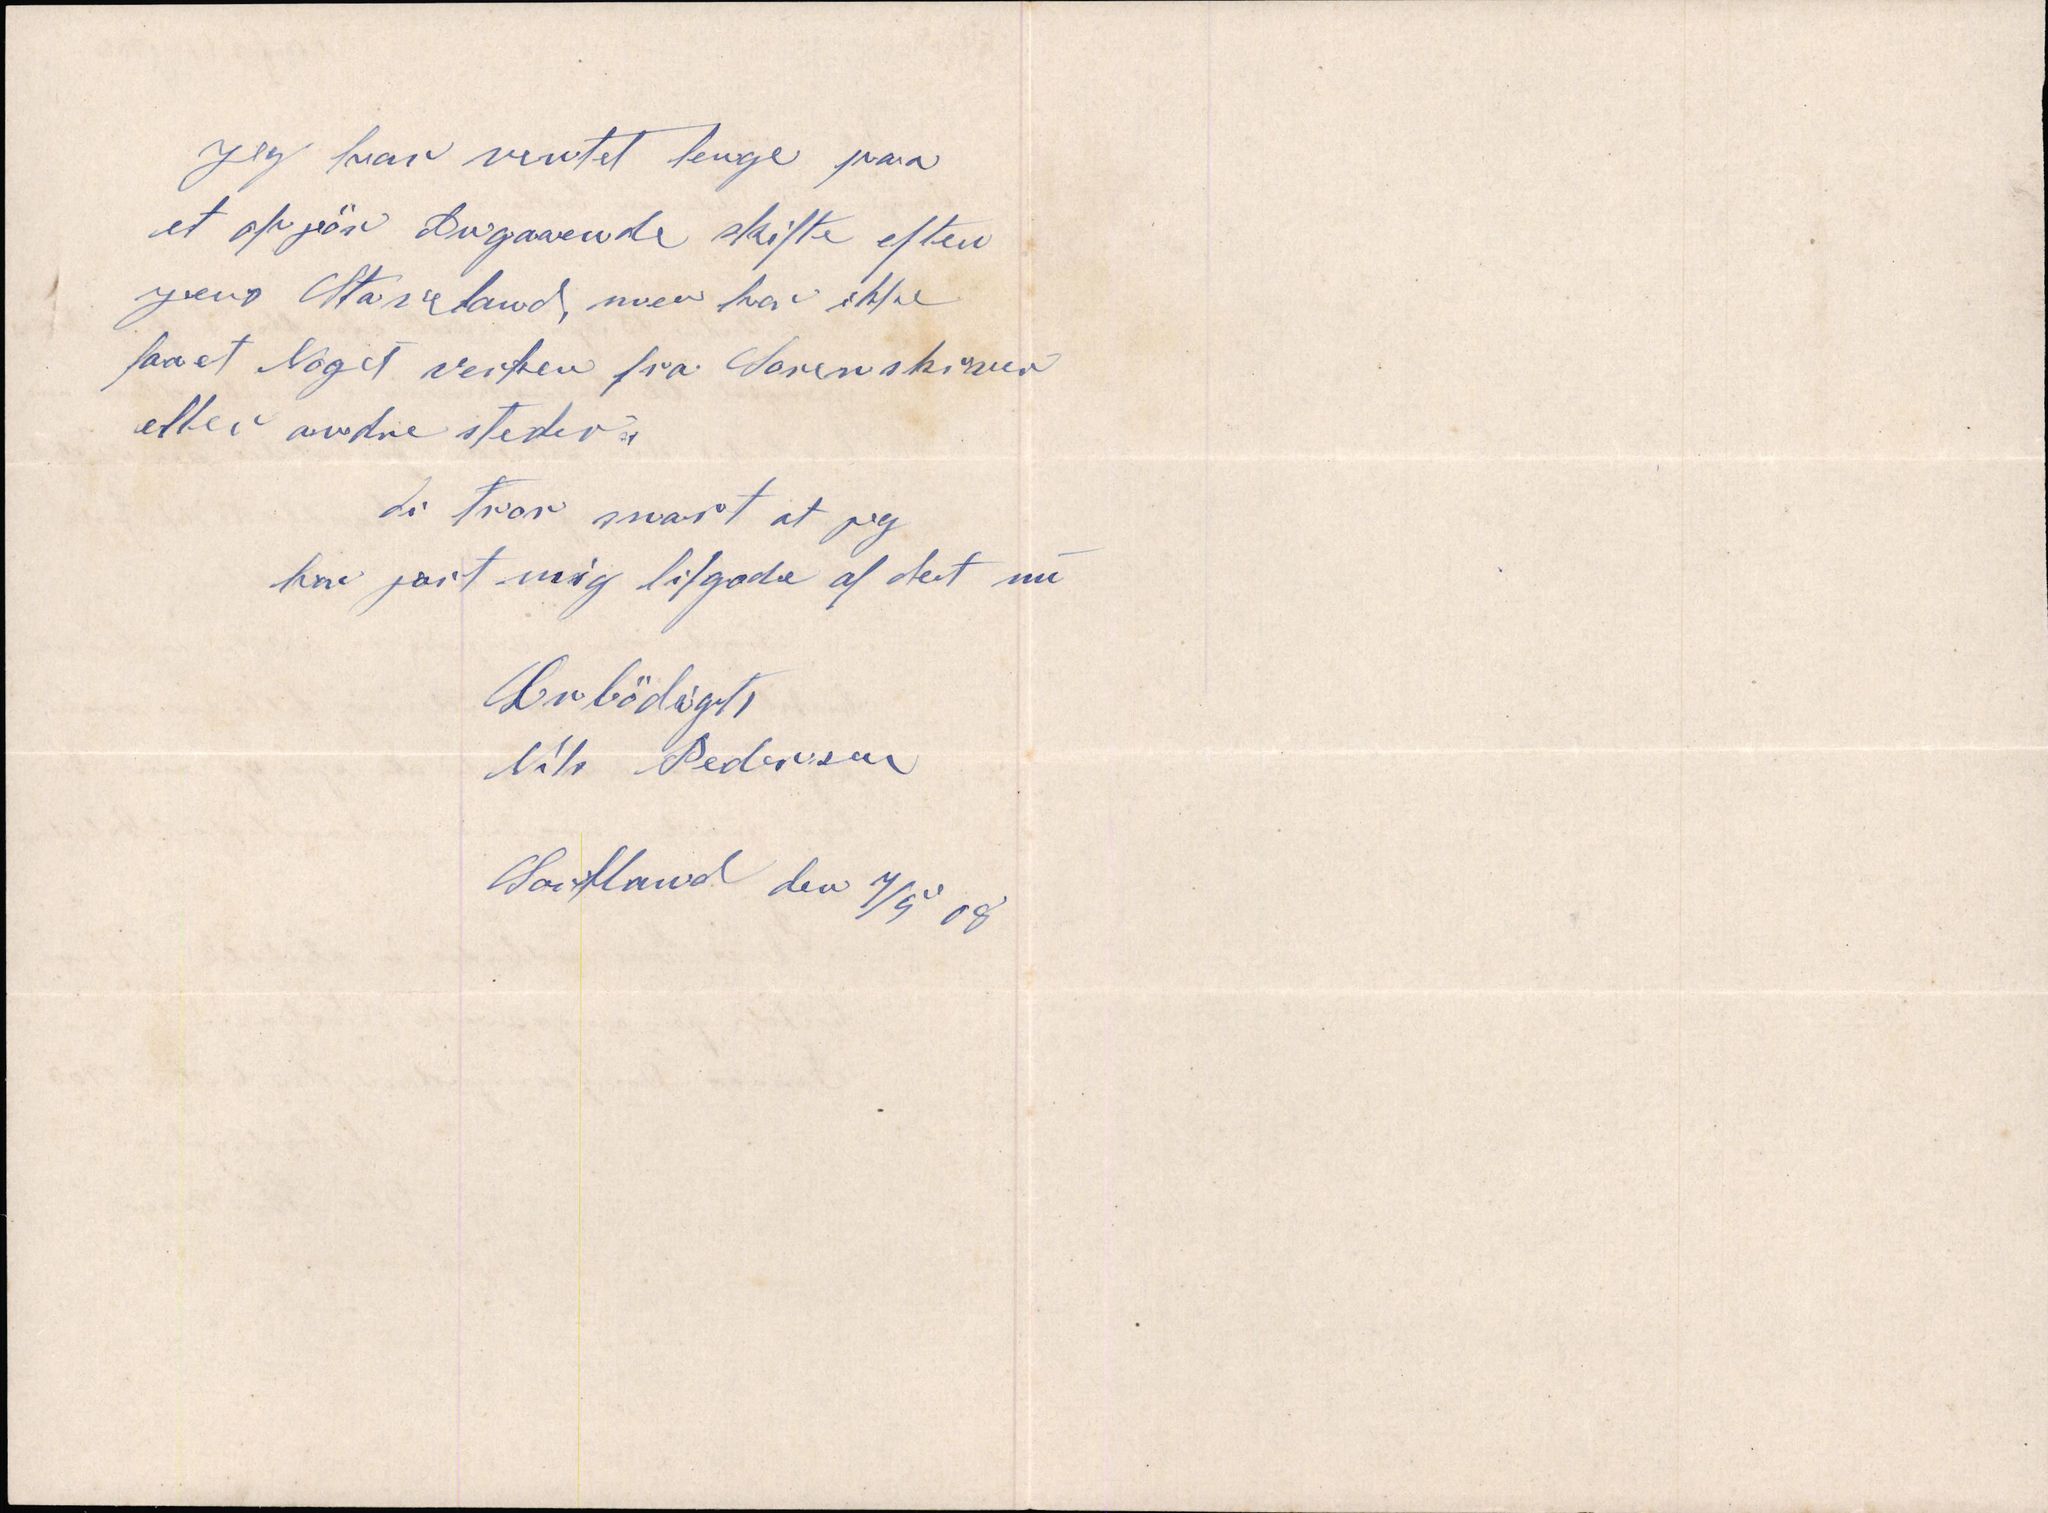 jeg har ventet lenge paa
et opgjör Angaaende skifte efter
jens Stangeland, men har ikke
faaet Noget verken fra Sorenskriver
eller andre steder
di tror snart at jeg
har jort mig tilgode af det nu
Ærbödigst
Nils Pedersen
den 7/5 08